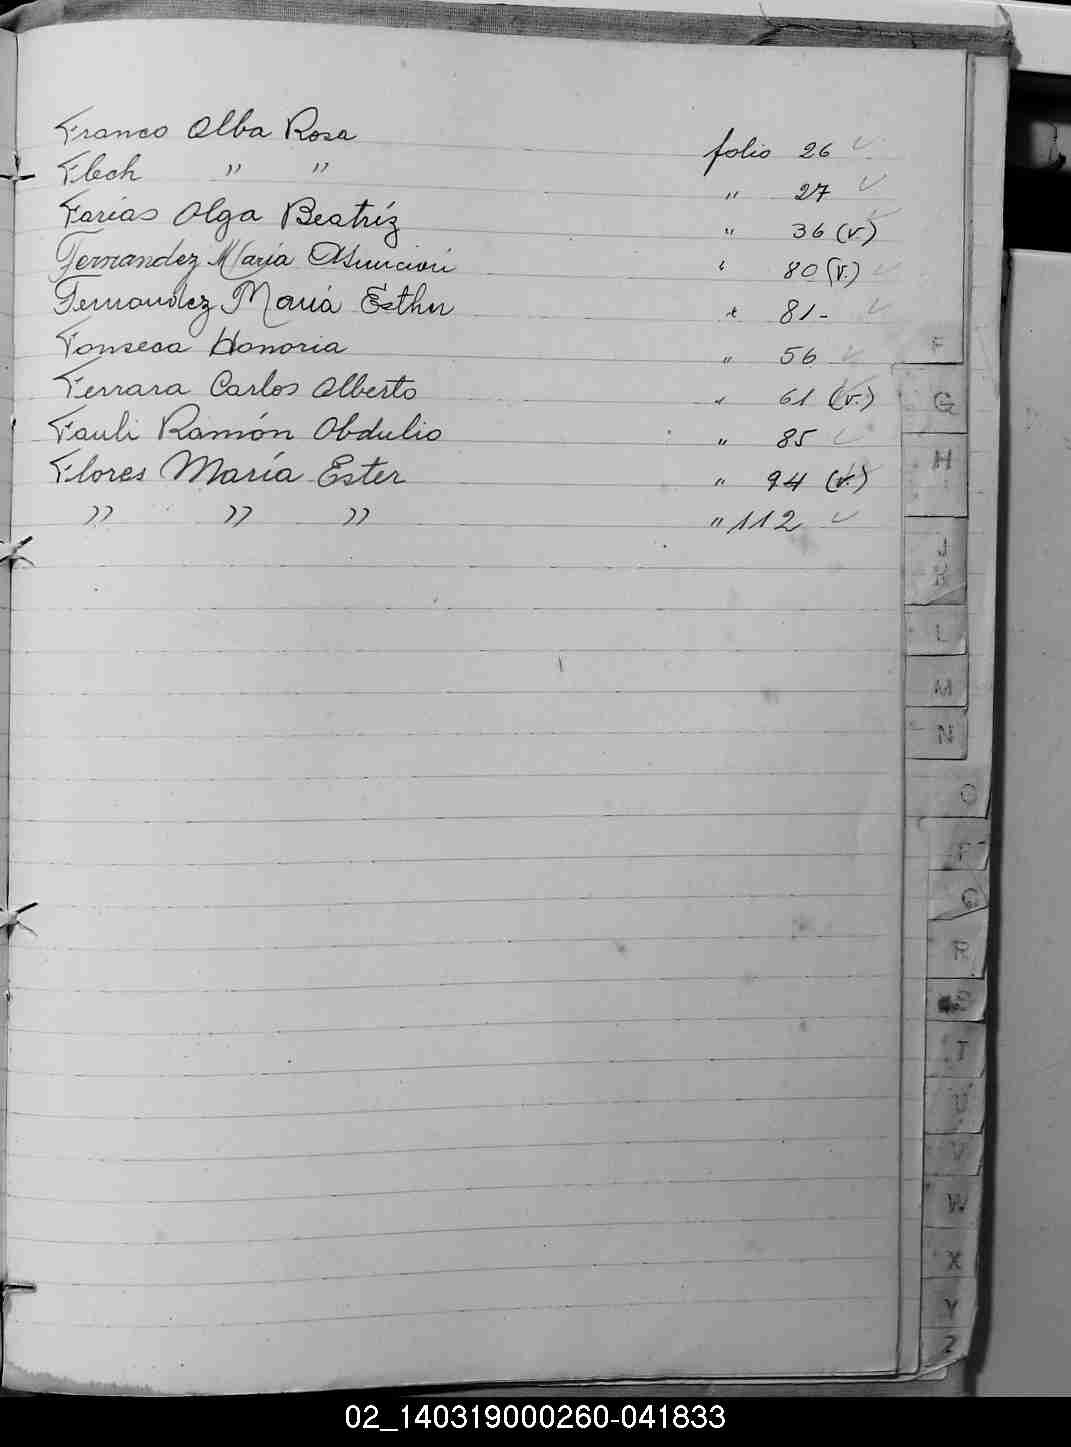 Franco Alba Rosa folio 26 ✓
Flech " " " 27 ✓
Farías Olga Beatríz " 36 (v.) ✓
Fernandez María Asunción " 80 (v.) ✓
Fernandez María Esther " 81- ✓
Fonseca Honoria " 56 ✓
Ferrara Carlos Alberto " 61 (v.) ✓
Fauli Ramón Obdulio " 85 ✓
Flores María Ester " 94 (v.) ✓
" " " " 112 ✓
F
G
H
J
L
M
N
O
P
Q
R
S
T
U
V
W
X
Y
Z
02_140319000260-041833